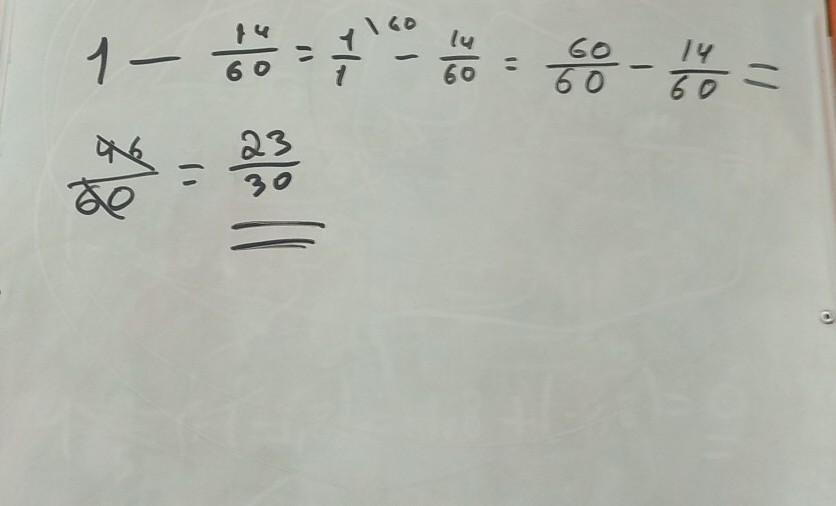 1 - 14/60 = 1/1 \60 - 14/60 = 60/60 - 14/60 =
46/60 = 23/30